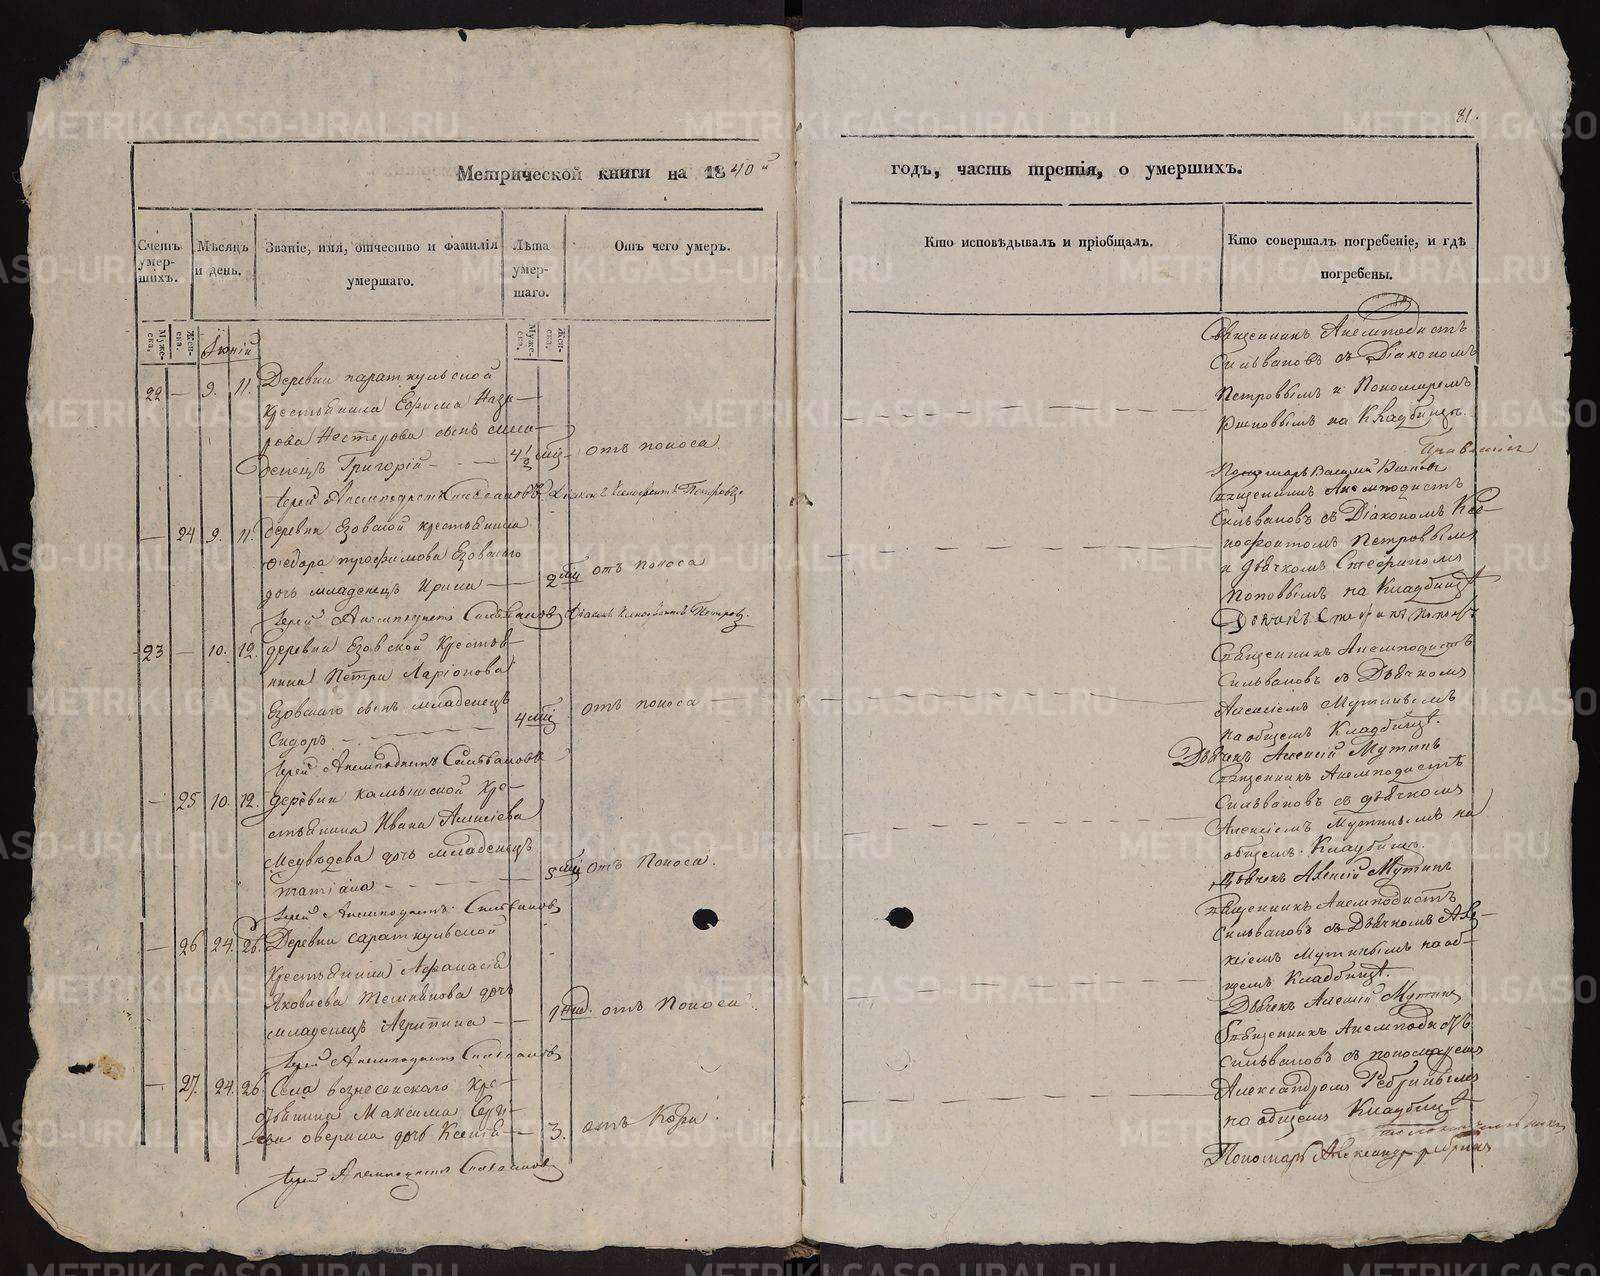 81.
Метрической книги на 1840й
годъ, часть третія, о умершихъ.
Счетъ умер- шихъ.
Мѣсяцъ и день.
Званіе, имя, отчество и фамилія умершаго.
Лѣта умер- шаго.
Отъ чего умеръ.
Кто исповѣдывалъ и пріобщалъ.
Кто совершалъ погребеніе, и гдѣ погребены.
Муже- ска.
Жен- ска.
Муже- ска.
Жен- ска.
Іюній
22 — 9. 11. Деревни
крестьянина Ефима Наза-
рова Нестерова сынъ мла-
денецъ Григорій — 4½ мц. отъ поноса
Іерей Анемподистъ Сильвановъ Діаконъ Ксенофонтъ Петровъ
Священникъ Анемподистъ
Сильвановъ съ Діакономъ
Петровымъ и Пономаремъ
на Кладбищѣ.
Пономарь Василій
— 24 9. 11. деревни Езовской крестьянина
Ѳедора трофимова Езовскаго
дочь младенецъ Ирина — 2 мц отъ поноса
Іерей Анемподистъ Сильвановъ Діаконъ Ксенофонтъ Петровъ
Священникъ Анемподистъ
Сильвановъ съ Діакономъ Ксе-
нофонтомъ Петровымъ
и дьячкомъ Стефаномъ
Поповымъ на Кладбищѣ
Дьячекъ Стефанъ Поповъ
23 — 10. 12. деревни Езовской Крестья-
нина Петра Ларіонова
Езовскаго сынъ младенецъ
Сидоръ — 4 мц отъ поноса
Іерей Анемподистъ Сильвановъ
Священникъ Анемподистъ
Сильвановъ съ Дьячкомъ
Алексіемъ Мутинымъ
на общемъ Кладбищѣ.
Дьячекъ Алексій Мутинъ
— 25 10. 12. деревни камышской кре-
стьянина Ивана Алексіева
Медвѣдева дочь младенецъ
татіана — 5 мц отъ Поноса.
Іерей Анемподистъ Сильвановъ
Священникъ Анемподистъ
Сильвановъ съ дьячкомъ
Алексіемъ Мутинымъ на
общемъ Кладбищѣ.
Дьячекъ Алексій Мутинъ
— 26 24. 26. Деревни сараткульской
Крестьянина Афанасія
Яковлева дочь
младенецъ Агрипина — 1 нед. отъ Поноса.
Іерей Анемподистъ Сильвановъ
Священникъ Анемподистъ
Сильвановъ съ Дьячкомъ Але-
ксіемъ Мутинымъ на об-
щемъ Кладбищѣ.
Дьячекъ Алексій Мутинъ
— 27. 24. 26. Села вознесенскаго кре-
стьянина Максима Серги-
ева оверина дочь Ксенія — 3. отъ Кори.
Іерей Анемподистъ Сильвановъ
Священникъ Анемподистъ
Сильвановъ съ пономаремъ
Александромъ
на общемъ Кладбищѣ
Пономарь Александръ
METRIKI.GASO-URAL.RU